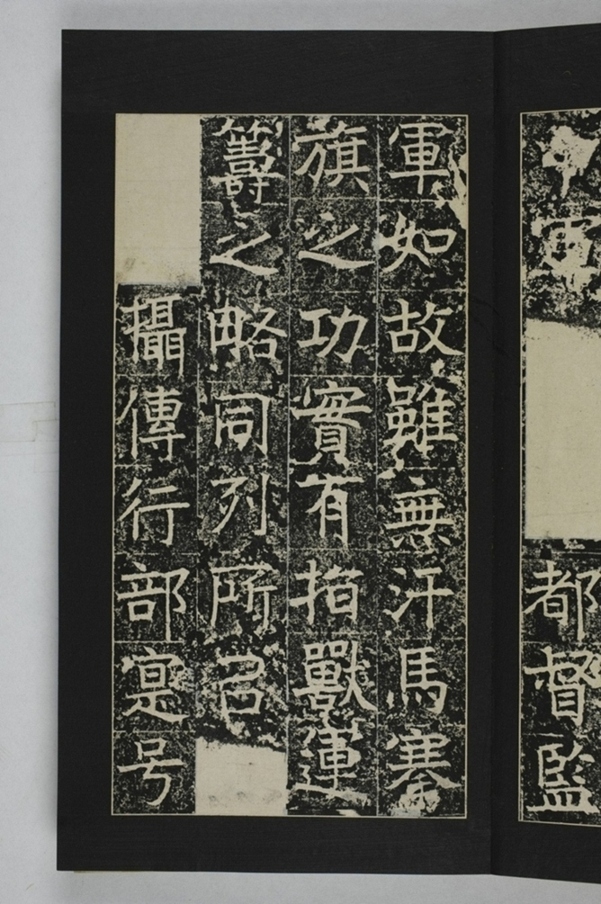 軍
都督監
軍如故雖無汗馬搴
旗之功實有指獸運
籌之略同列所
攝傳行部寔号